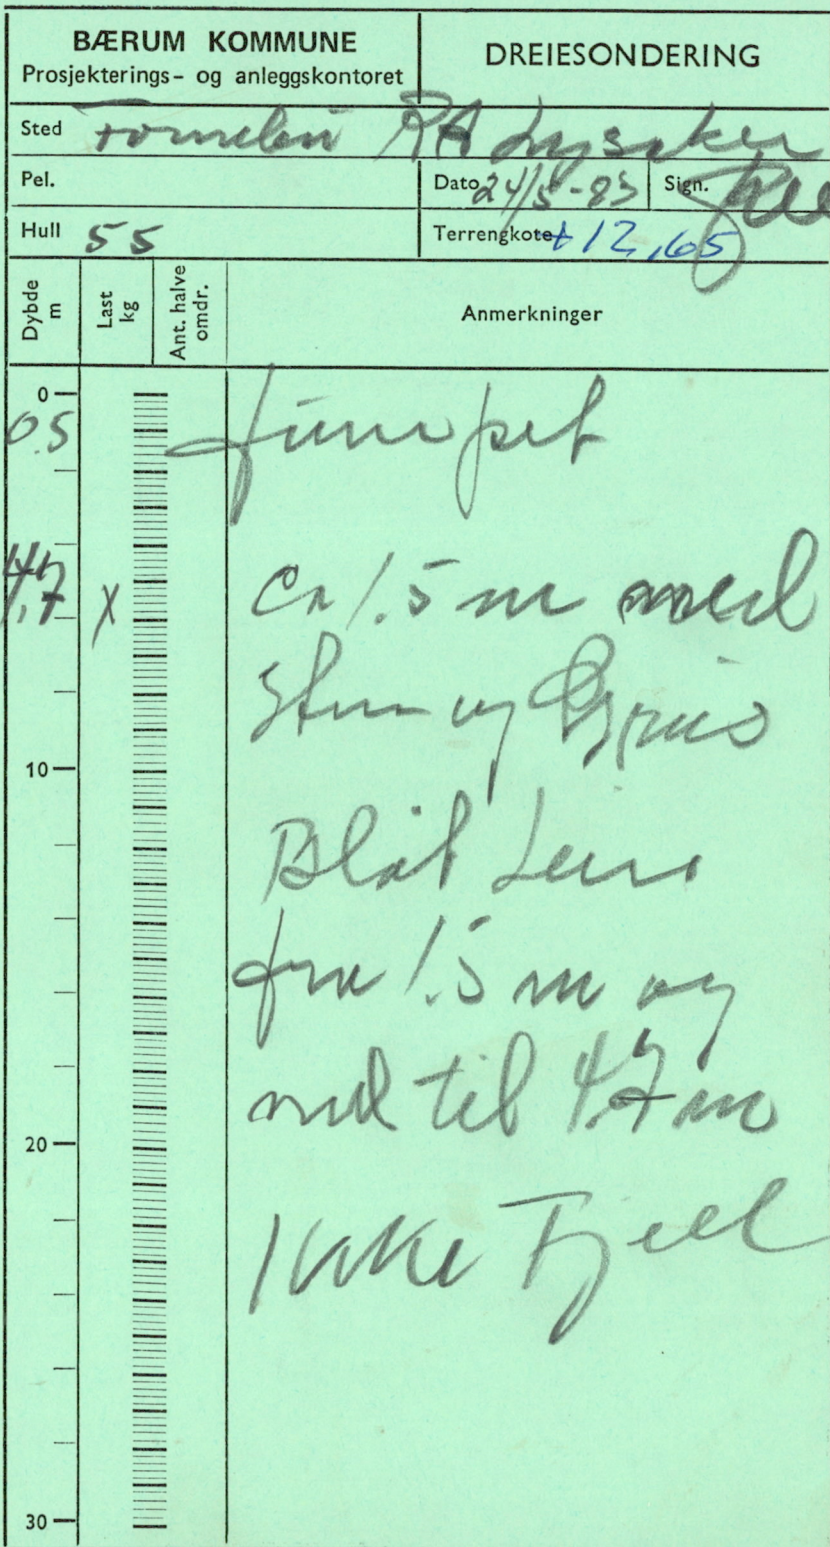 BÆRUM KOMMUNE
Prosjekterings- og anleggskontoret
DREIESONDERING
Sted Fornebu RA Lysaker
Pel.
Dato 24/5-83
Sign.
Hull 55
Terrengkote +12,65
Dybde m
Last kg
Ant. halve omdr.
Anmerkninger
0
0.5
Jumpet
4,7 x
Ca 1.5 m med
Sten og Grus
10
Blåt Leire
fra 1.5 m og
ned til 4.7 m
20
Ikke Fjell
30